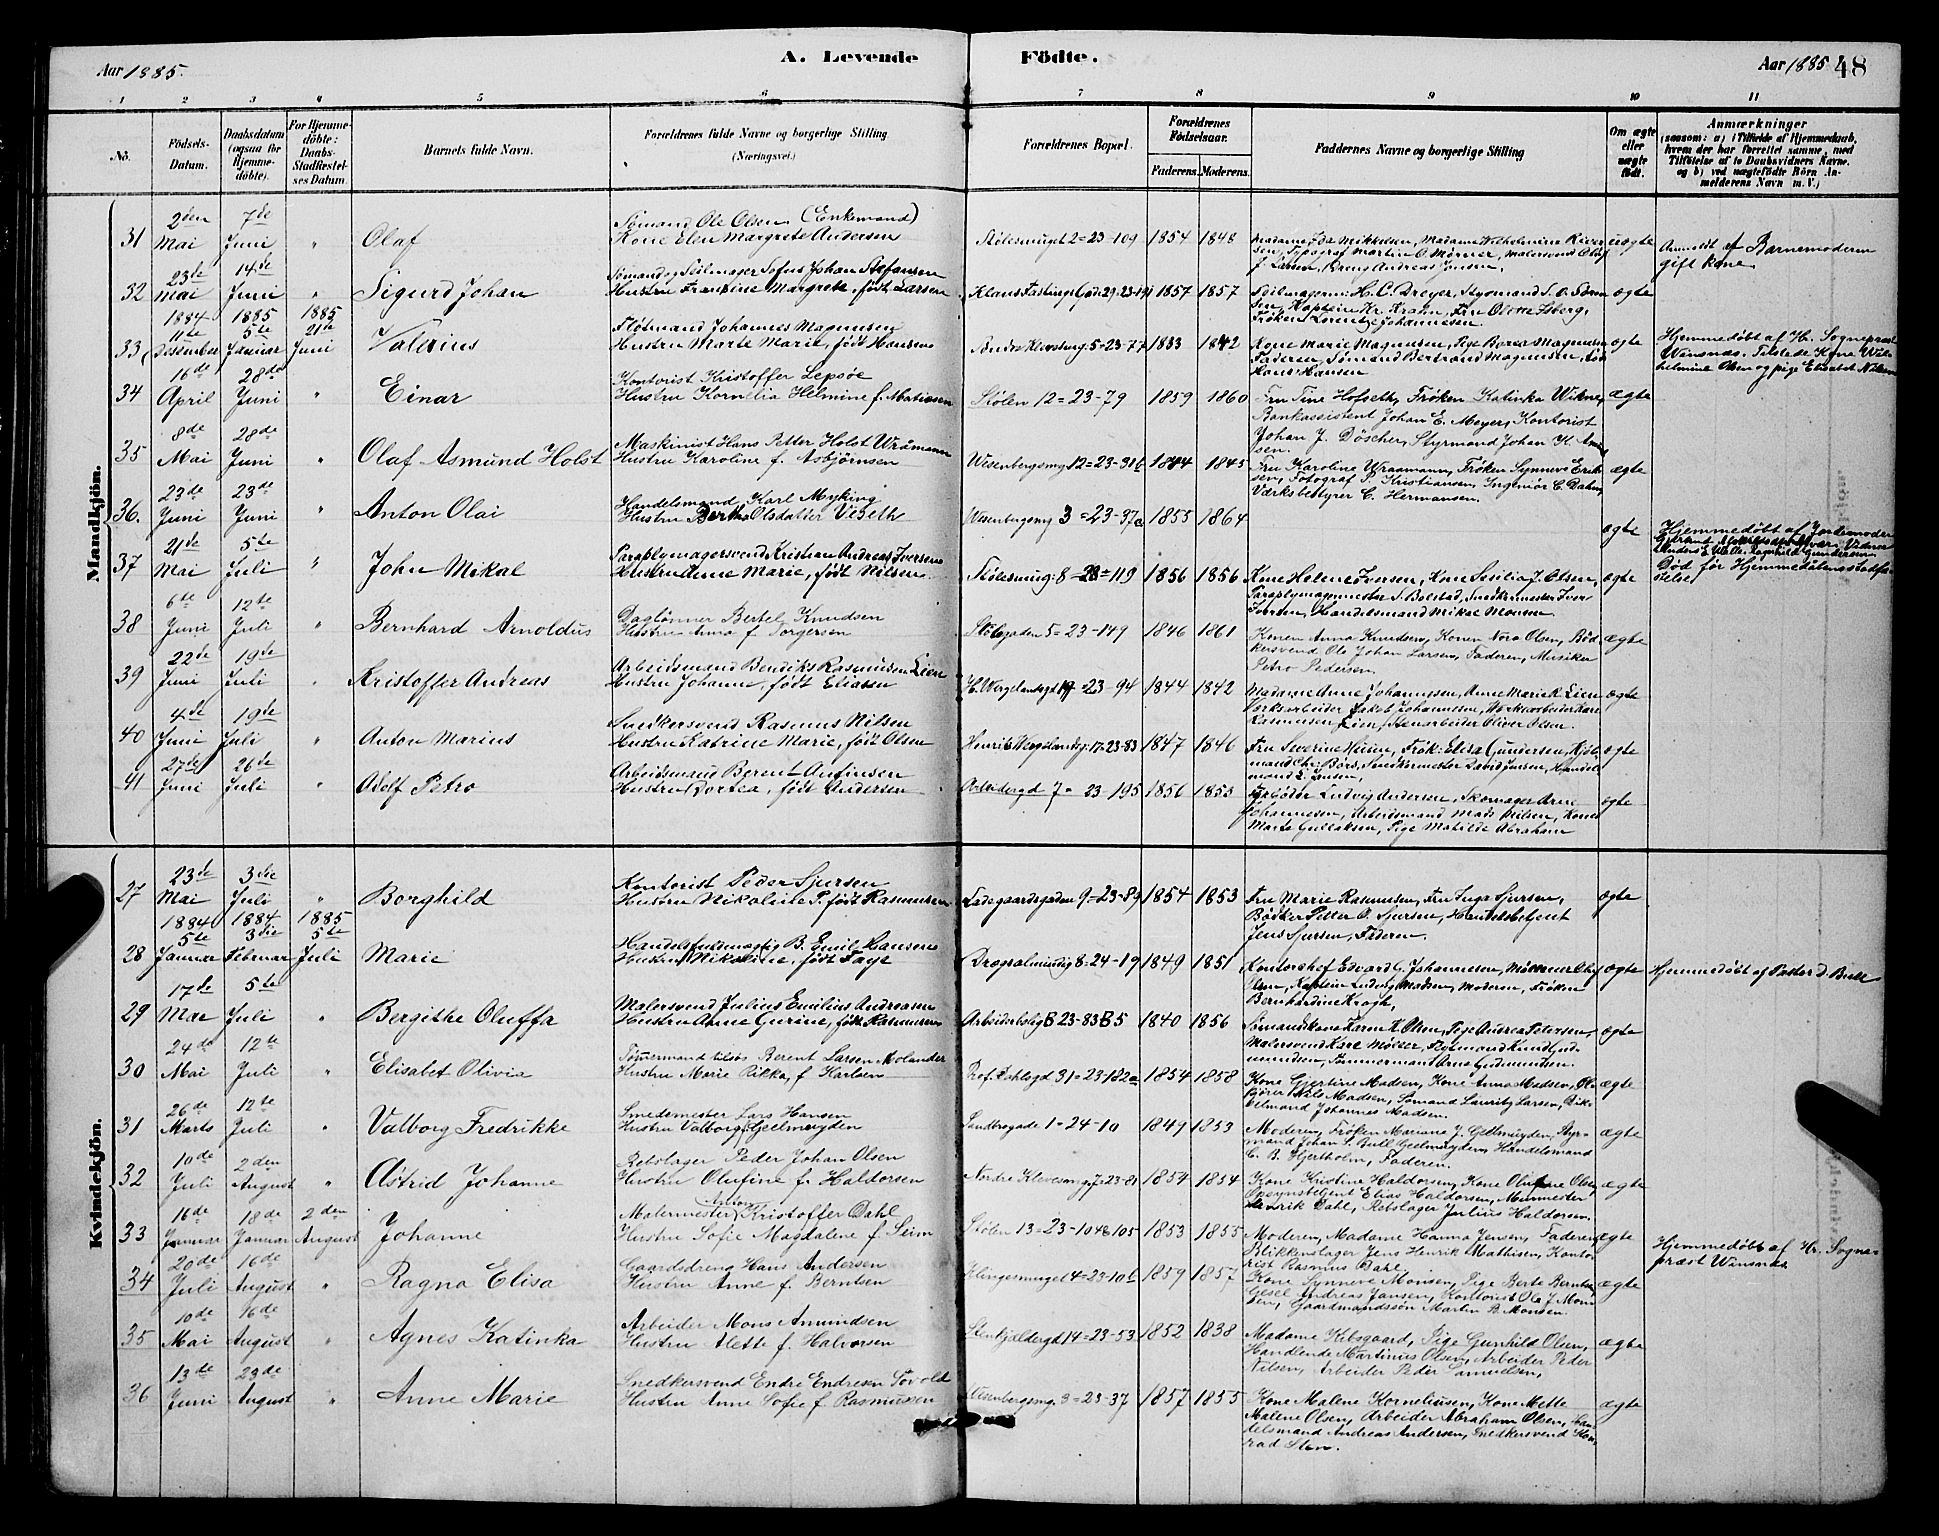 Aar 1885.
A. Levende
Födte.
Aar 1885
48
1 2 3 4 5 6 7 8 9 10 11
No.
Födsels-
Datum.
Daabsdatum
(ogsaa for
Hjemme-
döbte).
For Hjemme-
döbte:
Daabs-
Stadfæstel-
ses Datum.
Barnets fulde Navn.
Forældrenes fulde Navne og borgerlige Stilling.
(Næringsvei.)
Forældrenes Bopæl.
Forældrenes
Födselsaar.
Faderens. Moderens.
Faddernes Navne og borgerlige Stilling
Om ægte
eller
uægte
födt.
Anmærkninger
(saasom: a) i Tilfælde af Hjemmedaab,
hvem der har forrettet samme, med
Tilföielse af to Daabsvidners Navne.
og b) ved uægtefödte Börn An-
melderens Navn m. V.)
Mandkjön.
31 2den Mai 7de Juni " Olaf
Sømand Ole Olsen (Enkemand)
Kone Elen Margrete Andersen
Stølesmuget 2=23-109 1854 1848
Madame Ida Mikkelsen, Madame Wilhelmine
Typograf Martin O. Mørner, Malersvend Olaf
f. Larsen, Dreng Andreas Jensen.
uægte
Anmeldt af Barnemoderen
gift kone
32 23de Mai 14de Juni " Sigurd Johan
Sømand og Seilmager Sofus Johan Stefansen
Hustru Frantine Margrete, født Larsen
1857 1857
Seilmagerm. H. C. Dreyer, Styrmand
Kaptein Kr. Krahn, Fru Olette Isberg,
Frøken Lorentze Johannesen.
ægte
33 1884 11te Desember 1885 5te Januar 1885 21de Juni Valerius
Fløtmand Johannes Magnussen
Hustru Marte Marie, født Hansen
5-23-77 1833 1842
Kone Marie Magnussen, Pige Borea Magnussen
Faderen, Sømand Bertrand Magnussen,
Hans Hansen
ægte
Hjemmedøbt af Hr. Sognepræst
Winsnæs. Tilstede Kone Wil-
helmine Olsen og pige Elisabet Nilsen
34 16de April 28de Juni " Einar
Kontorist Kristoffer Lepsøe
Hustru Kornelia Helmine f. Matiesen
Stølen 12=23-79 1859 1860
Fru Tine Hofseth, Frøken Katinka Wikne,
Bankassistent Johan E. Meyer, Kontorist
Johan J. Döscher, Styrmand Johan H.
ægte
35 8de Mai 28de Juni " Olaf Asmund Holst
Maskinist Hans Petter Holst Wråmann
Hustru Karoline f. Asbjørnsen
Wesenbergsmg 12=23-31b 1844 1845
Fru Karoline Wraamann, Frøken Synneve Erik-
sen, Fotograf P. Kristiansen, Ingeniør C. Dahm,
Værksbestyrer C. Hermansen.
ægte
36. 23de Juni 23de Juni " Anton Olai
Handelsmand Karl Myking
Hustru Bertha Olsdatter Veseth
Wesenbergsmg 3=23-37a 1855 1864
ægte
Hjemmedøbt af Jordemoder
Død før Hjemmedåbens stadfæ-
stelse
37 21de Mai 5te Juli " John Mikal
Paraplymagersvend Kristian Andreas Iversen
Hustru Anne Marie, født Nilsen
Stølesmug: 8=23-119 1856 1856
Kone Helene Iversen, Kone Sesilia J. Olsen,
Paraplymagermester S. Bolstad, Snedkermester Iver
Iversen, Handelsmand Mikal Monsen.
ægte
38 6te Juni 12te Juli " Bernhard Arnoldus
Dagløner Bertel Knudsen
Hustru Anna f. Torgersen
Stølegaden 5=23-149 1846 1861
Konen Anna Knudsen, Konen Nora Olsen, Bød-
kersvend Ole Johan Larsen, Faderen, Musiker
Petro Pedersen
ægte
39 22de Juni 19de Juli " Kristoffer Andreas
Arbeidsmand Bendiks Rasmussen Lien
Hustru Johanne, født Eliassen
H. Wergelandsgd 19=23 94 1844 1842
Madame Anne Johannesen, Anne Marie K. Lien
Værksarbeider Jakob Johannesen, Værksarbeider Lars
Rasmussen Lien, Stenarbeider Oliver Olsen.
ægte
40 4de Juni 19de Juli " Anton Marius
Snedkersvend Rasmus Nilsen
Hustru Katrine Marie, født Olsen
Henrik Wergelandsg: 17-23-83 1847 1846
Fru Severine Heien, Frøk: Elisa Gundersen, Kjøb-
mand Chr. Børs, Snedkermester David Jensen, Handels-
mand L. Jansen,
ægte
41 27de Juni 26de Juli " Adolf Petro
Arbeidsmand Berent Anfinsen
Hustru Dortea, født Andersen
Arbeidergd 7=23-195 1856 1853
Ludvig Andersen, Skomager Arne
Johannesen, Arbeidsmand Mads Nilsen, Kone
Marta Gullaksen, Pige Matilde Abraham
ægte
Kvindekjön.
27 23de Mai 3die Juli " Borghild
Kontorist Peder Sjursen
Hustru Nikoline P. født Rasmussen
Ladegaardsgaden 9=23-89 1854 1853
Fru Marie Rasmussen, Fru Inga Sjursen,
Bødker Petter O. Sjursen, Handelsbetjent
Jens Sjursen, Faderen.
ægte
28 1884 5te Januar 1884 3die Februar 1885 5te Juli Marie
Handelsfuldmægtig B. Emil Hansen
Hustru Nikoline, født Faye
8=24-19 1849 1851
Kontorchef Edvard C. Johannesen,
Olsen, Kaptein Ludvig Madsen, Moderen, Frøken
Bernhardine Krogh,
ægte
Hjemmedøbt af Pastor d. Bull
29 17de Mai 5te Juli " Bergithe Oluffa
Malersvend Julius Emilius Andreasen
Hustru Anne Gurine, født Rasmussen
Arbeiderbolig B 23-83 B5 1840 1856
Sømandskone Karen K. Olsen, Pige Andrea Petersen,
Malersvend Karl Møller, Styrmand Knud Gud-
mundsen, Tømmermand Arne Gudmundsen.
ægte
30 24de Mai 12te Juli " Elisabet Olivia
Tømmermand tilsøs Berent Larsen Molander
Hustru Marie Rikka, f. Karlsen
Prof. Dahlsgd 31=23-182a 1854 1858
Kone Gjertine Madsen, Kone Anna Madsen,
Nils Madsen, Sømand Lauritz Larsen,
Johannes Madsen.
ægte
31 26de Marts 12te Juli " Valborg Fredrikke
Smedemester Lars Hansen
Hustru Valborg f. Geelmuyden
Sandbrogade 1=24-10 1849 1853
Moderen, Frøken Mariane J. Geelmuyden, Styr-
mand Johan S. Bull Geelmuyden, Handelsmand
C. B. Hjertholm, Faderen.
ægte
32 10de Juli 2den August " Astrid Johanne
Rebslager Peder Johan Olsen
Hustru Olufine f. Haldorsen
Nordre Klevesmug 7=23-81 1854 1854
Kone Kristine Haldorsen, Kone Olufine Olsen
Opsynsbetjent Elias Haldorsen, Murmester
Henrik Dahl, Rebslager Julius Haldorsen
ægte
33 16de Januar 18de Januar 2den August Johanne
Malermester Anton Kristoffer Dahl
Hustru Sofie Magdalene f. Seim
Stølen 13=23-104 & 105 1853 1855
Moderen, Madame Hanna Jensen, Faderen,
Blikkenslager Jens Henrik Mathisen, Konto-
rist Rasmus Dahl.
ægte
Hjemmedøbt af Hr. Sogne-
præst Winsnæs
34 20de Juli 16de August " Ragna Elisa
Gaardsdreng Hans Andersen
Hustru Anne f. Berntsen
Klingesmuget 4=23-10b 1859 1857
Kone Synneve Monsen, Pige Berte Berntsen
Gesel Andreas Jansen, Kontorist Ole J. Mon-
sen, Gaardmandssøn Martin B. Monsen.
ægte
35 10de Mai 16de August " Agnes Katinka
Arbeider Mons Amundsen
Hustru Alette f. Halvorsen
Stenkjældergd 14=23-53 1852 1838
Madame Kelsgaard, Pige Gunhild Olsen,
Handlende Martinus Olsen, Arbeider Peder
Nilsen, Arbeider Peder Samuelsen,
ægte
36 13de Juni 23de August " Anne Marie
Snedkersvend Endre Endresen Søvold
Hustru Anne Sofie f. Rasmussen
Wesenbergsmg. 3=23-37 1857 1855
Kone Malene Korneliusen, Kone Mette
Malene Olsen, Arbeider Abraham Olsen, Han-
delsmand Andreas Andersen, Snedkersvend Kon-
rad Sten.
ægte